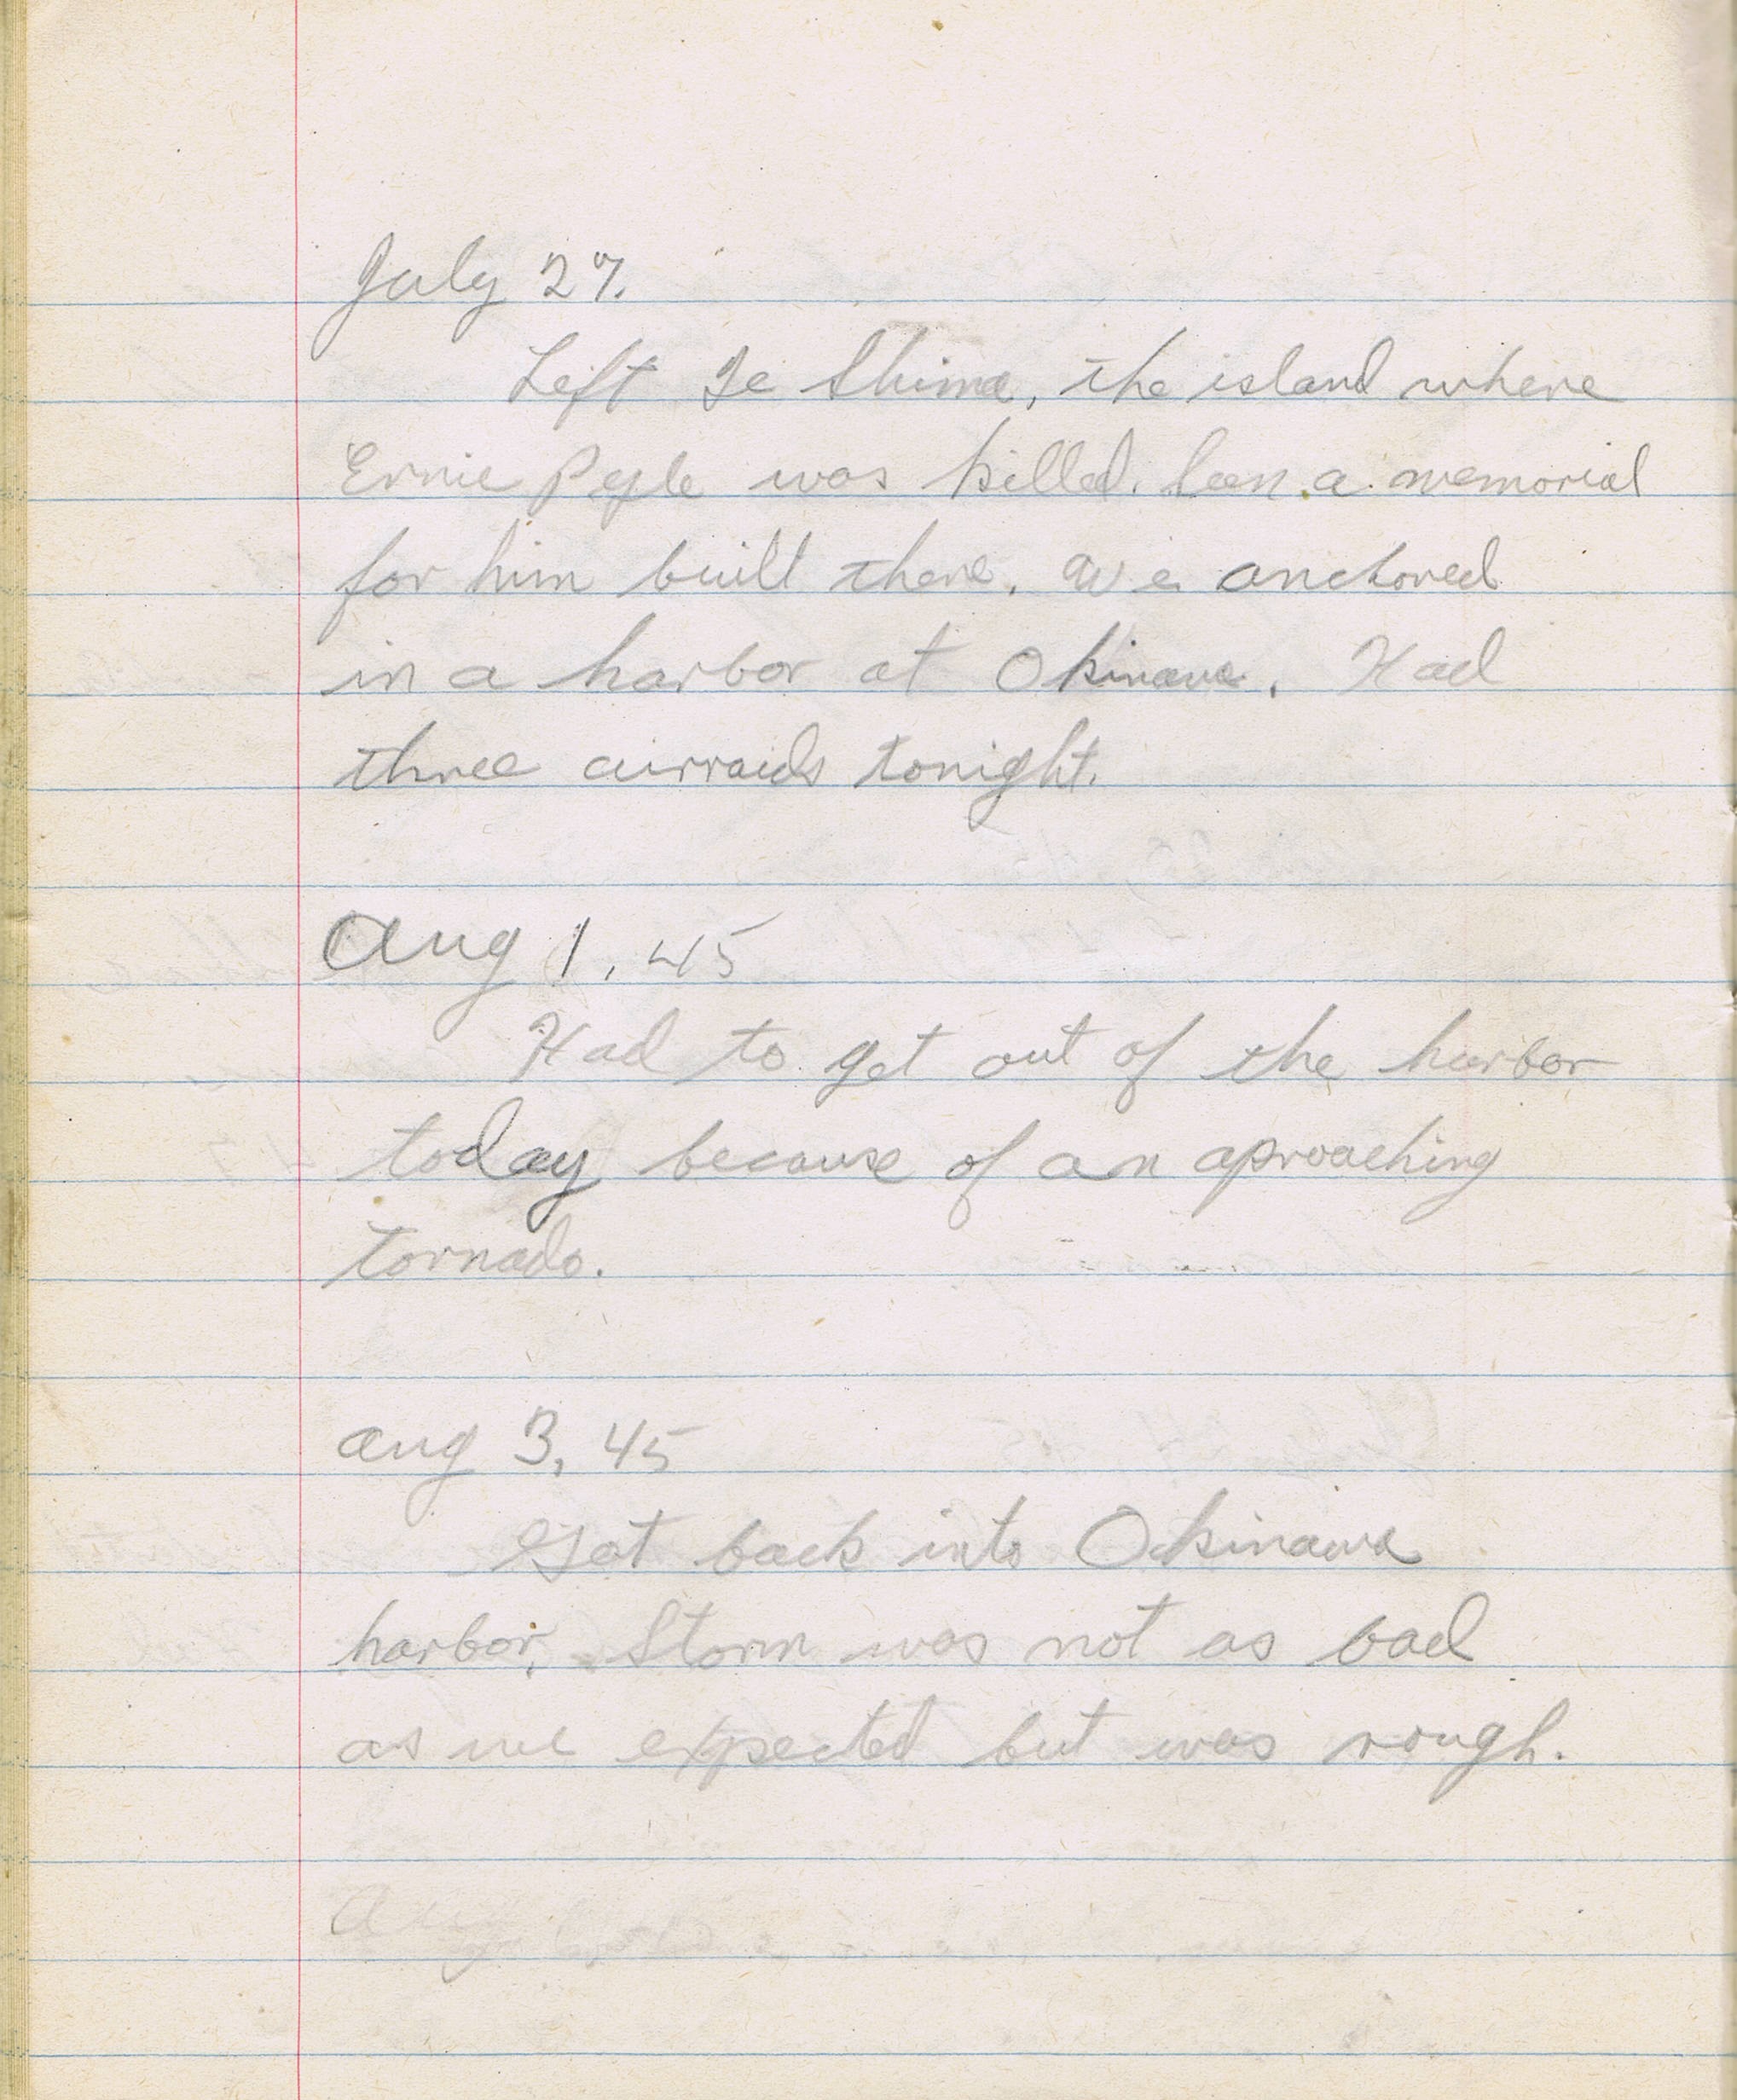 July 27.
Left Ie Shima, the island where
Ernie Pyle was killed. Seen a memorial
for him built there. We anchored
in a harbor at Okinawa. Had
three airraids tonight.
Aug 1, 45
Had to get out of the harbor
today because of an aproaching
tornado.
Aug 3, 45
Got back into Okinawa
harbor. Storm was not as bad
as we expected but was rough.